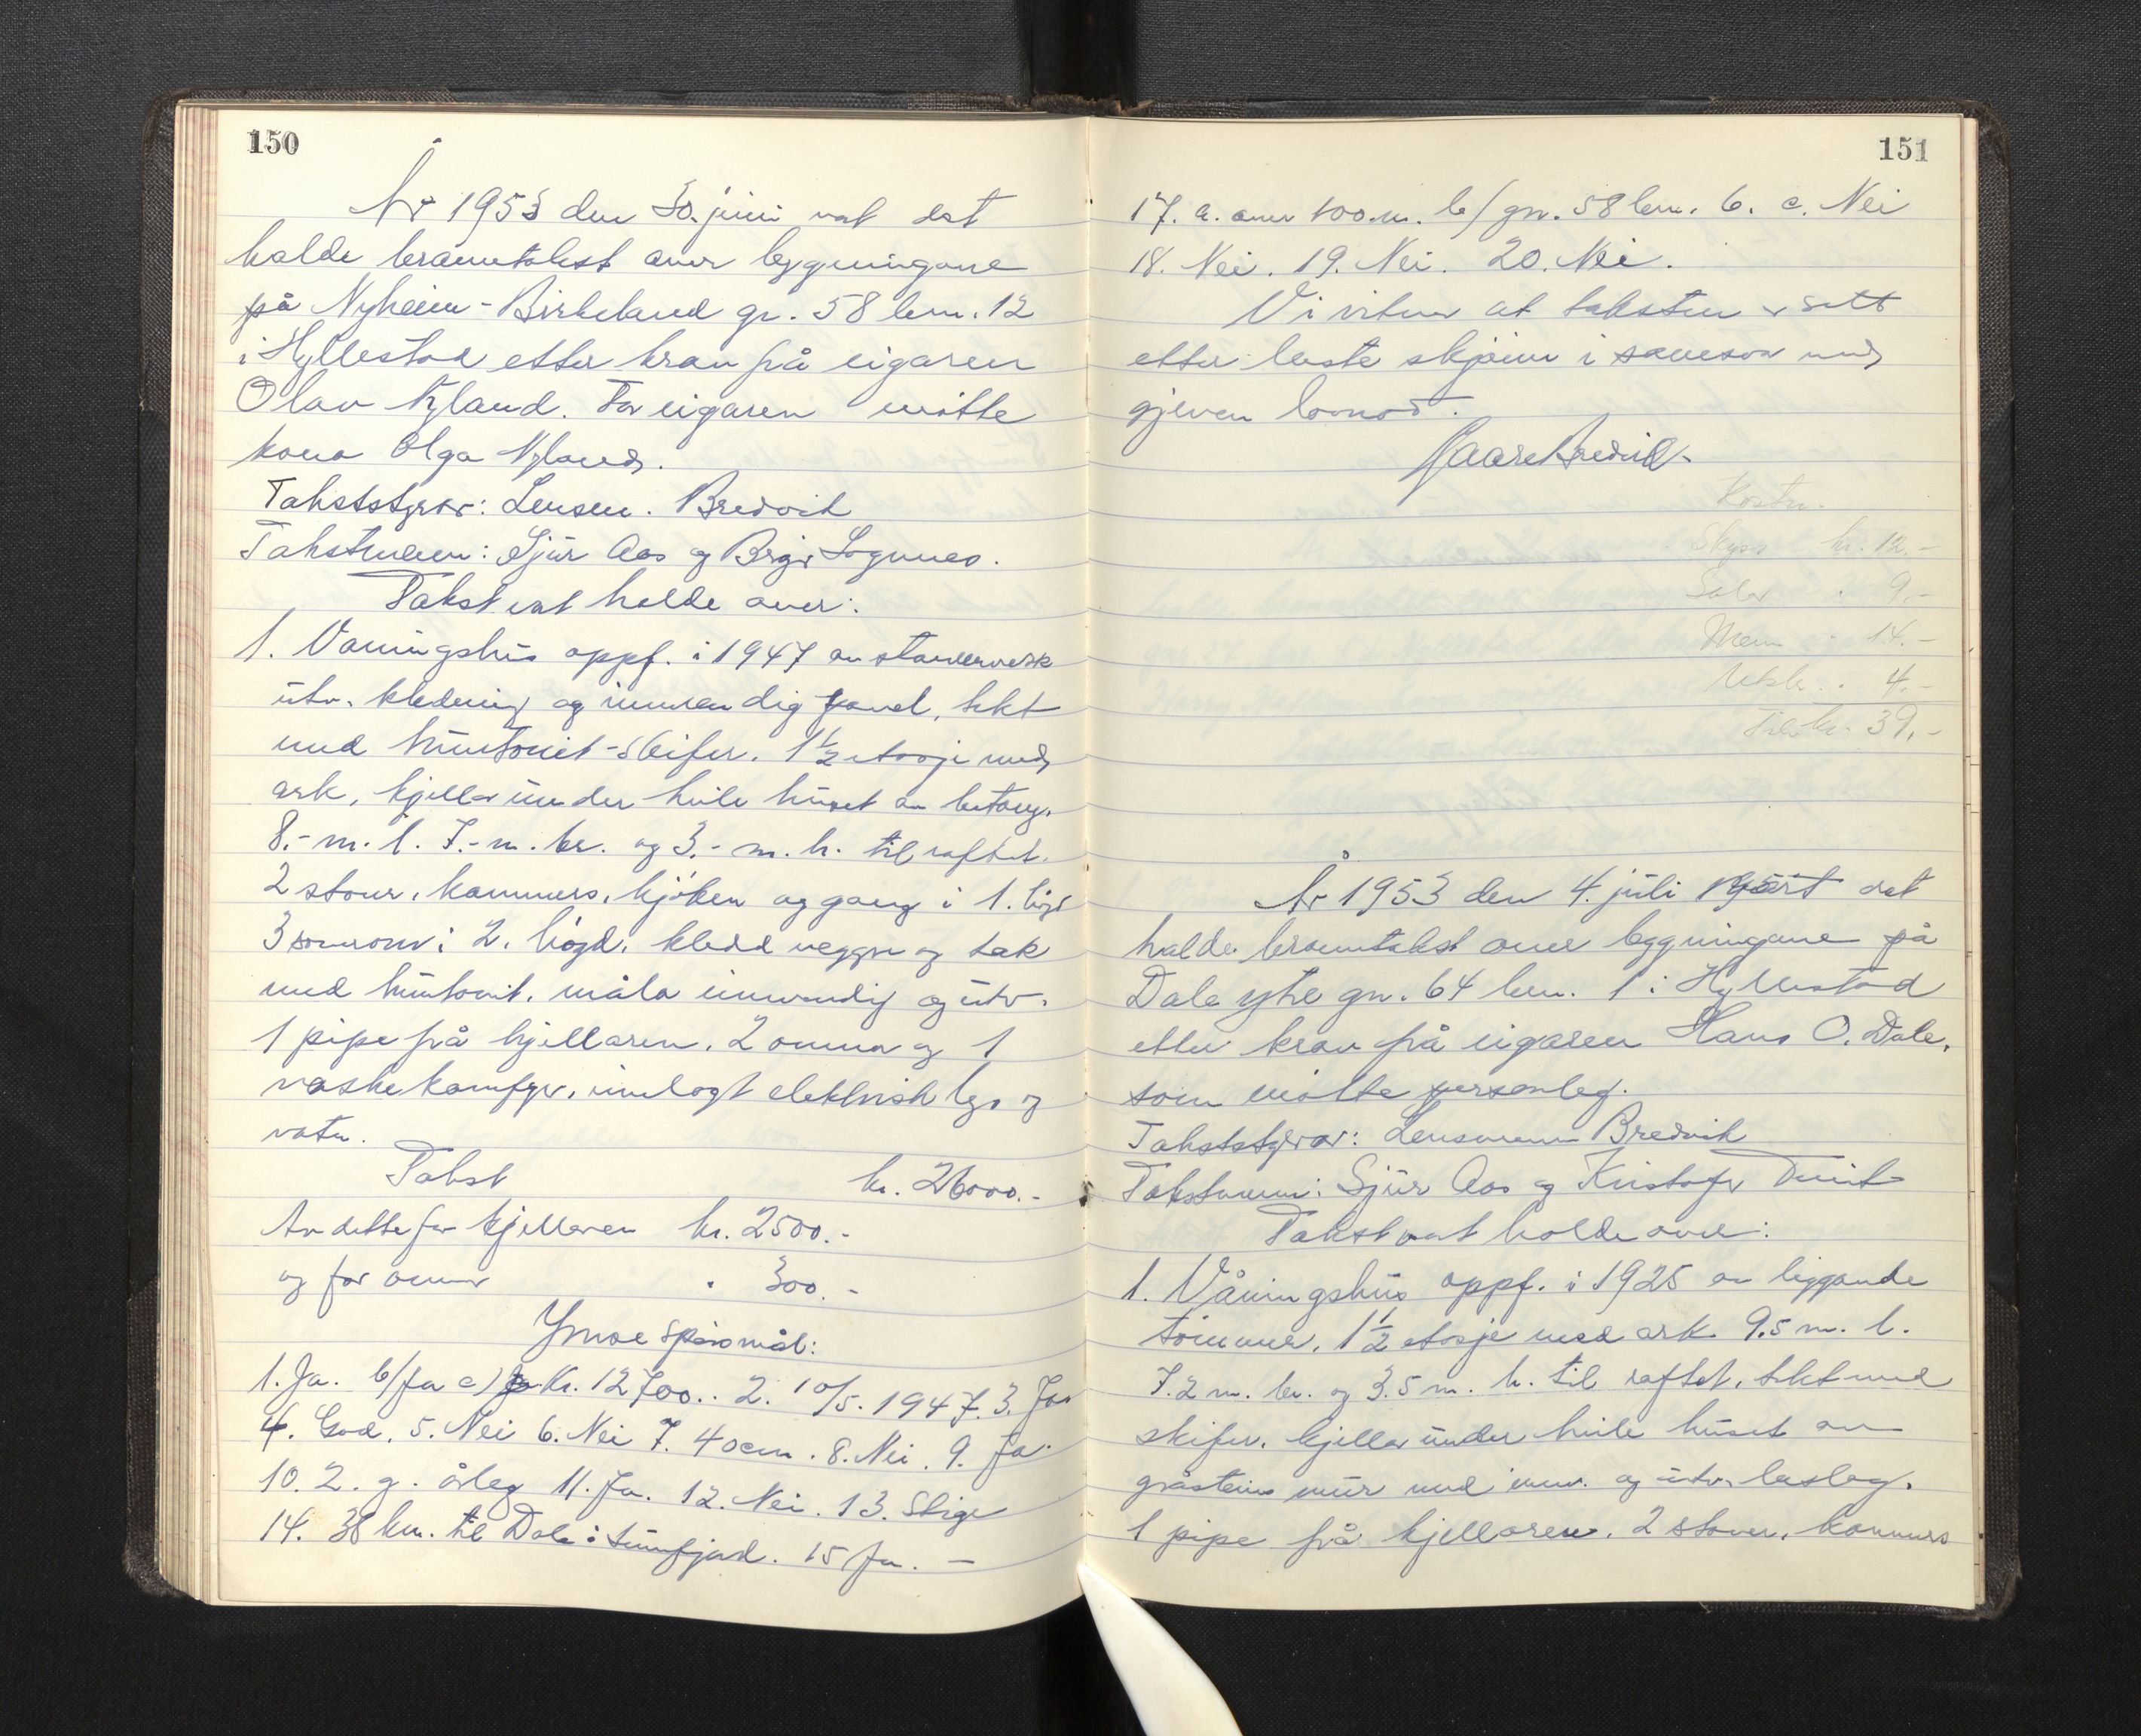 150
År 1953 den 30. juni vart det
halde branntakst over bygningane
på Nyheim - Birkeland gn. 58 bnr. 12
i Hyllestad etter krav frå eigaren
Olav Nyland. For eigaren møtte
kona Olga Nyland.
Takststyrar: Lensm. Bredvik
Takstmenn: Sjur Aas og Birger Sognnes.
Takst vart halde over:
1. Våningshus oppf. i 1947 av stenderverk
utv. kledning og innvendig panel, tekt
med huntonit-skifer. 1½ etasje med
ark, kjellar under heile huset av betong.
8.- m. l. 7.- m. br. og 3.- m. h. til raftet.
2 stover, kammers, kjøken og gang i 1. høgd
3 soverom i 2. høgd. kledd veggar og tak
med huntonit. måla innvendig og utv.
1 pipe frå kjellaren. 2 omnar og 1
vaskekomfyr, innlagt elektrisk lys og
vatn.
Takst kr. 26000.-
Av dette for kjellaren kr. 2500.-
og for omnar " 300.-
Ymse spørsmål:
1. Ja. b/ Ja c) Kr. 12700.. 2. 10/5. 1947. 3. Ja
4. God. 5. Nei 6. Nei 7. 40cm. 8. Nei. 9. Ja.
10. 2. g. årleg 11. Ja. 12. Nei. 13. Stige
14. 38 km. til Dale i Sunnfjord. 15 Ja. -
151
17. a. over 100. m. b/ gn. 58 bnr. 6. c. Nei
18. Nei. 19. Nei. 20. Nei.
Vi vitnar at taksten er sett
etter beste skjønn i samsvar med
gjeven lovnad.
Kaare Bredvik
Kostn.
Skyss kr. 12.-
Salær " 9.-
Menn " 14.-
Utskr. " 4.-
Til s. kr. 39.-
År 1953 den 4. juli vart det
halde branntakst over bygningane på
Dale ytre gn. 64 bnr. 1 i Hyllestad
etter krav frå eigaren Hans O. Dale,
som møtte personleg.
Takststyrar: Lensmann Bredvik
Takstmenn: Sjur Aas og Kristofer
Takst vart halde over:
1. Våningshus oppf. i 1925 av liggande
tømmer, 1½ etasje med ark 9.5 m. l.
7.2 m. br. og 3.5 m. h. til raftet, tekt med
skifer, kjellar under heile huset av
gråsteins mur med innv. og utv. beslag.
1 pipe frå kjellaren. 2 stover, kammers